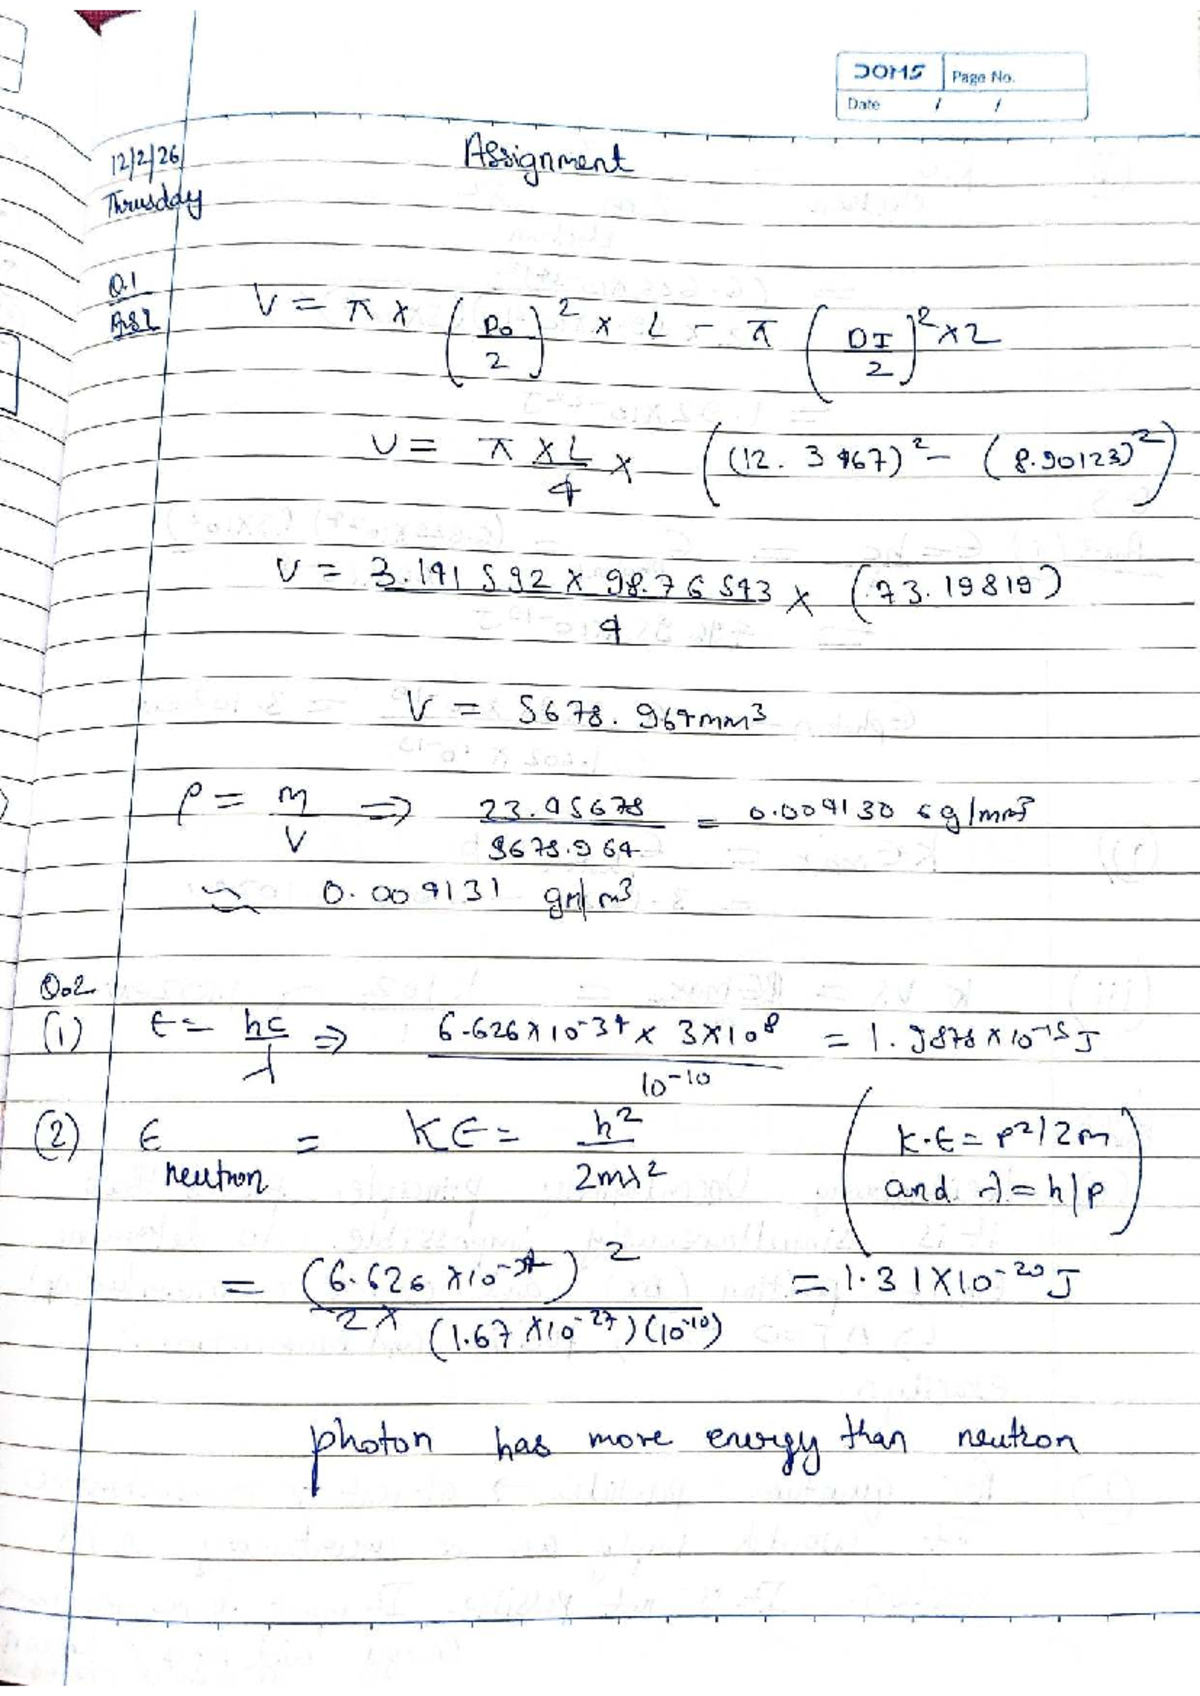 DOMS Page No.
Date / /
Assignment
12/2/26
Thrusday
Q.1
Ans 1
V = π × (DO/2)² × L - π (DI/2)² × L
V = π × L/4 × ((12.3467)² - (8.90123)²)
V = 3.141592 × 98.76543/4 × (73.19819)
V = 5678.964 mm³
ρ = m/V ⇒ 23.45678/5678.964 = 0.0041306 g/mm³
≈ 0.004131 gm/m³
Q.2
(1) E = hc/λ ⇒ 6.626×10⁻³⁴ × 3×10⁸/10⁻¹⁰ = 1.9878×10⁻¹⁵ J
(2) E neutron = KE = h²/2mλ² (K.E = P²/2m and λ = h/p)
= (6.626×10⁻³⁴)²/2×(1.67×10⁻²⁷)(10⁻¹⁰) = 1.31×10⁻²⁰ J
photon has more energy than neutron